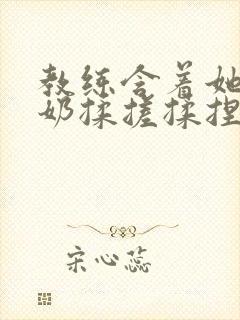 教练含着她
奶揉搓揉捏
宋心蕊